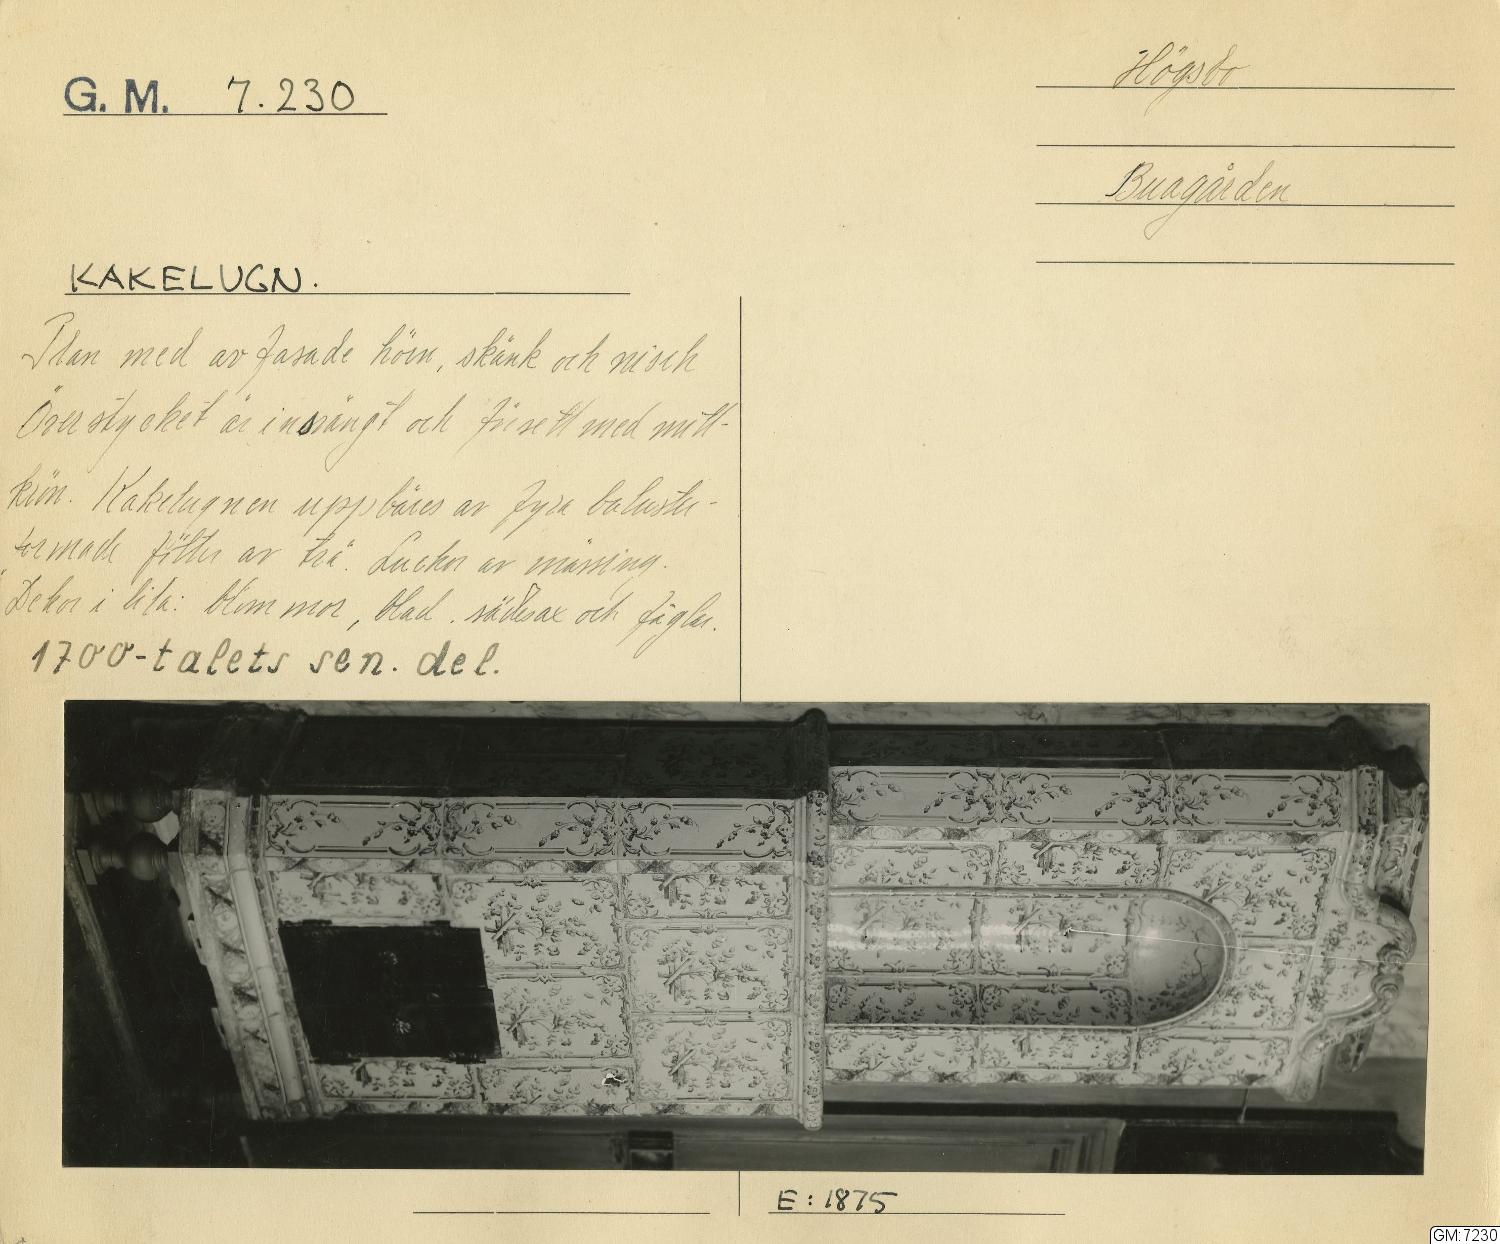 G. M. 7.230
Högsbo
Buagården
KAKELUGN.
Plan med av fasade hörn, skänk och nisch
Överstycket är insvängt och försett med mitt-
krön. Kakelugnen uppbäres av fyra baluster-
formade fötter av trä. Luckor av mässing.
Dekor i lila: blommor, blad, sädesax och fåglar.
1700-talets sen. del.
E: 1875
GM:7230